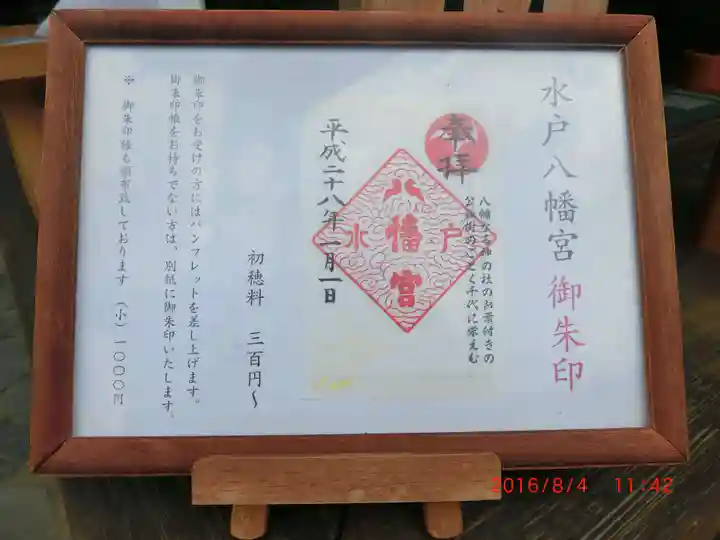 水戸八幡宮 御朱印
奉拝
八幡なる神の社のお葉付きの
公孫樹のごとく千代に栄えむ
八幡宮
水戸
平成二十八年一月一日
初穂料 三百円～
御朱印をお受けの方にはパンフレットを差し上げます。
御朱印帳をお持ちでない方は、別紙に御朱印いたします。
※ 御朱印帳も頒布致しております (小) 一〇〇〇円
2016/8/4 11:42